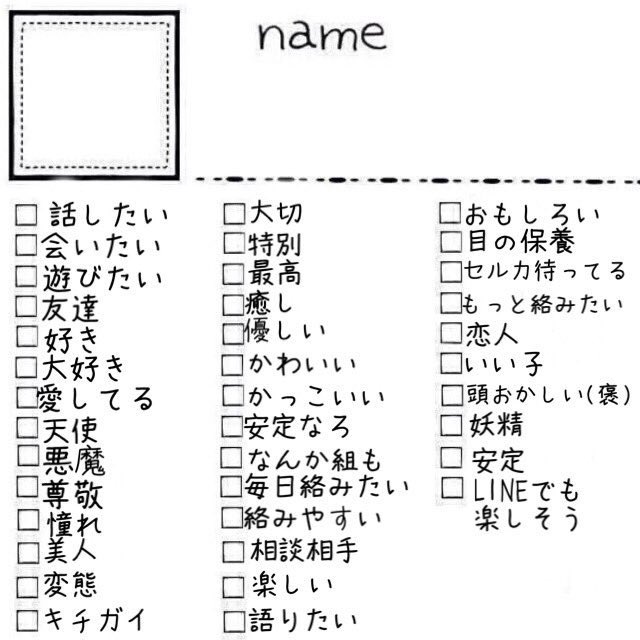 name
□ 話したい
□ 会いたい
□ 遊びたい
□ 友達
□ 好き
□ 大好き
□ 愛してる
□ 天使
□ 悪魔
□ 尊敬
□ 憧れ
□ 美人
□ 変態
□ キチガイ
□ 大切
□ 特別
□ 最高
□ 癒し
□ 優しい
□ かわいい
□ かっこいい
□ 安定なろ
□ なんか組も
□ 毎日絡みたい
□ 絡みやすい
□ 相談相手
□ 楽しい
□ 語りたい
□ おもしろい
□ 目の保養
□ セルカ待ってる
□ もっと絡みたい
□ 恋人
□ いい子
□ 頭おかしい(褒)
□ 妖精
□ 安定
□ LINEでも
楽しそう